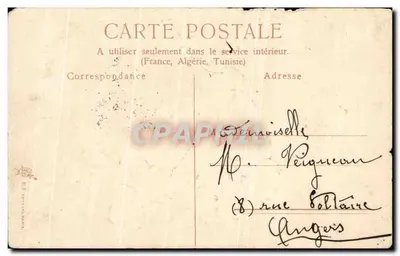 CARTE POSTALE
A utiliser seulement dans le service intérieur
(France, Algérie, Tunisie)
Correspondance
Adresse
CARPHILA
Mademoiselle
M. Veigneau
(8) rue Voltaire
Angers